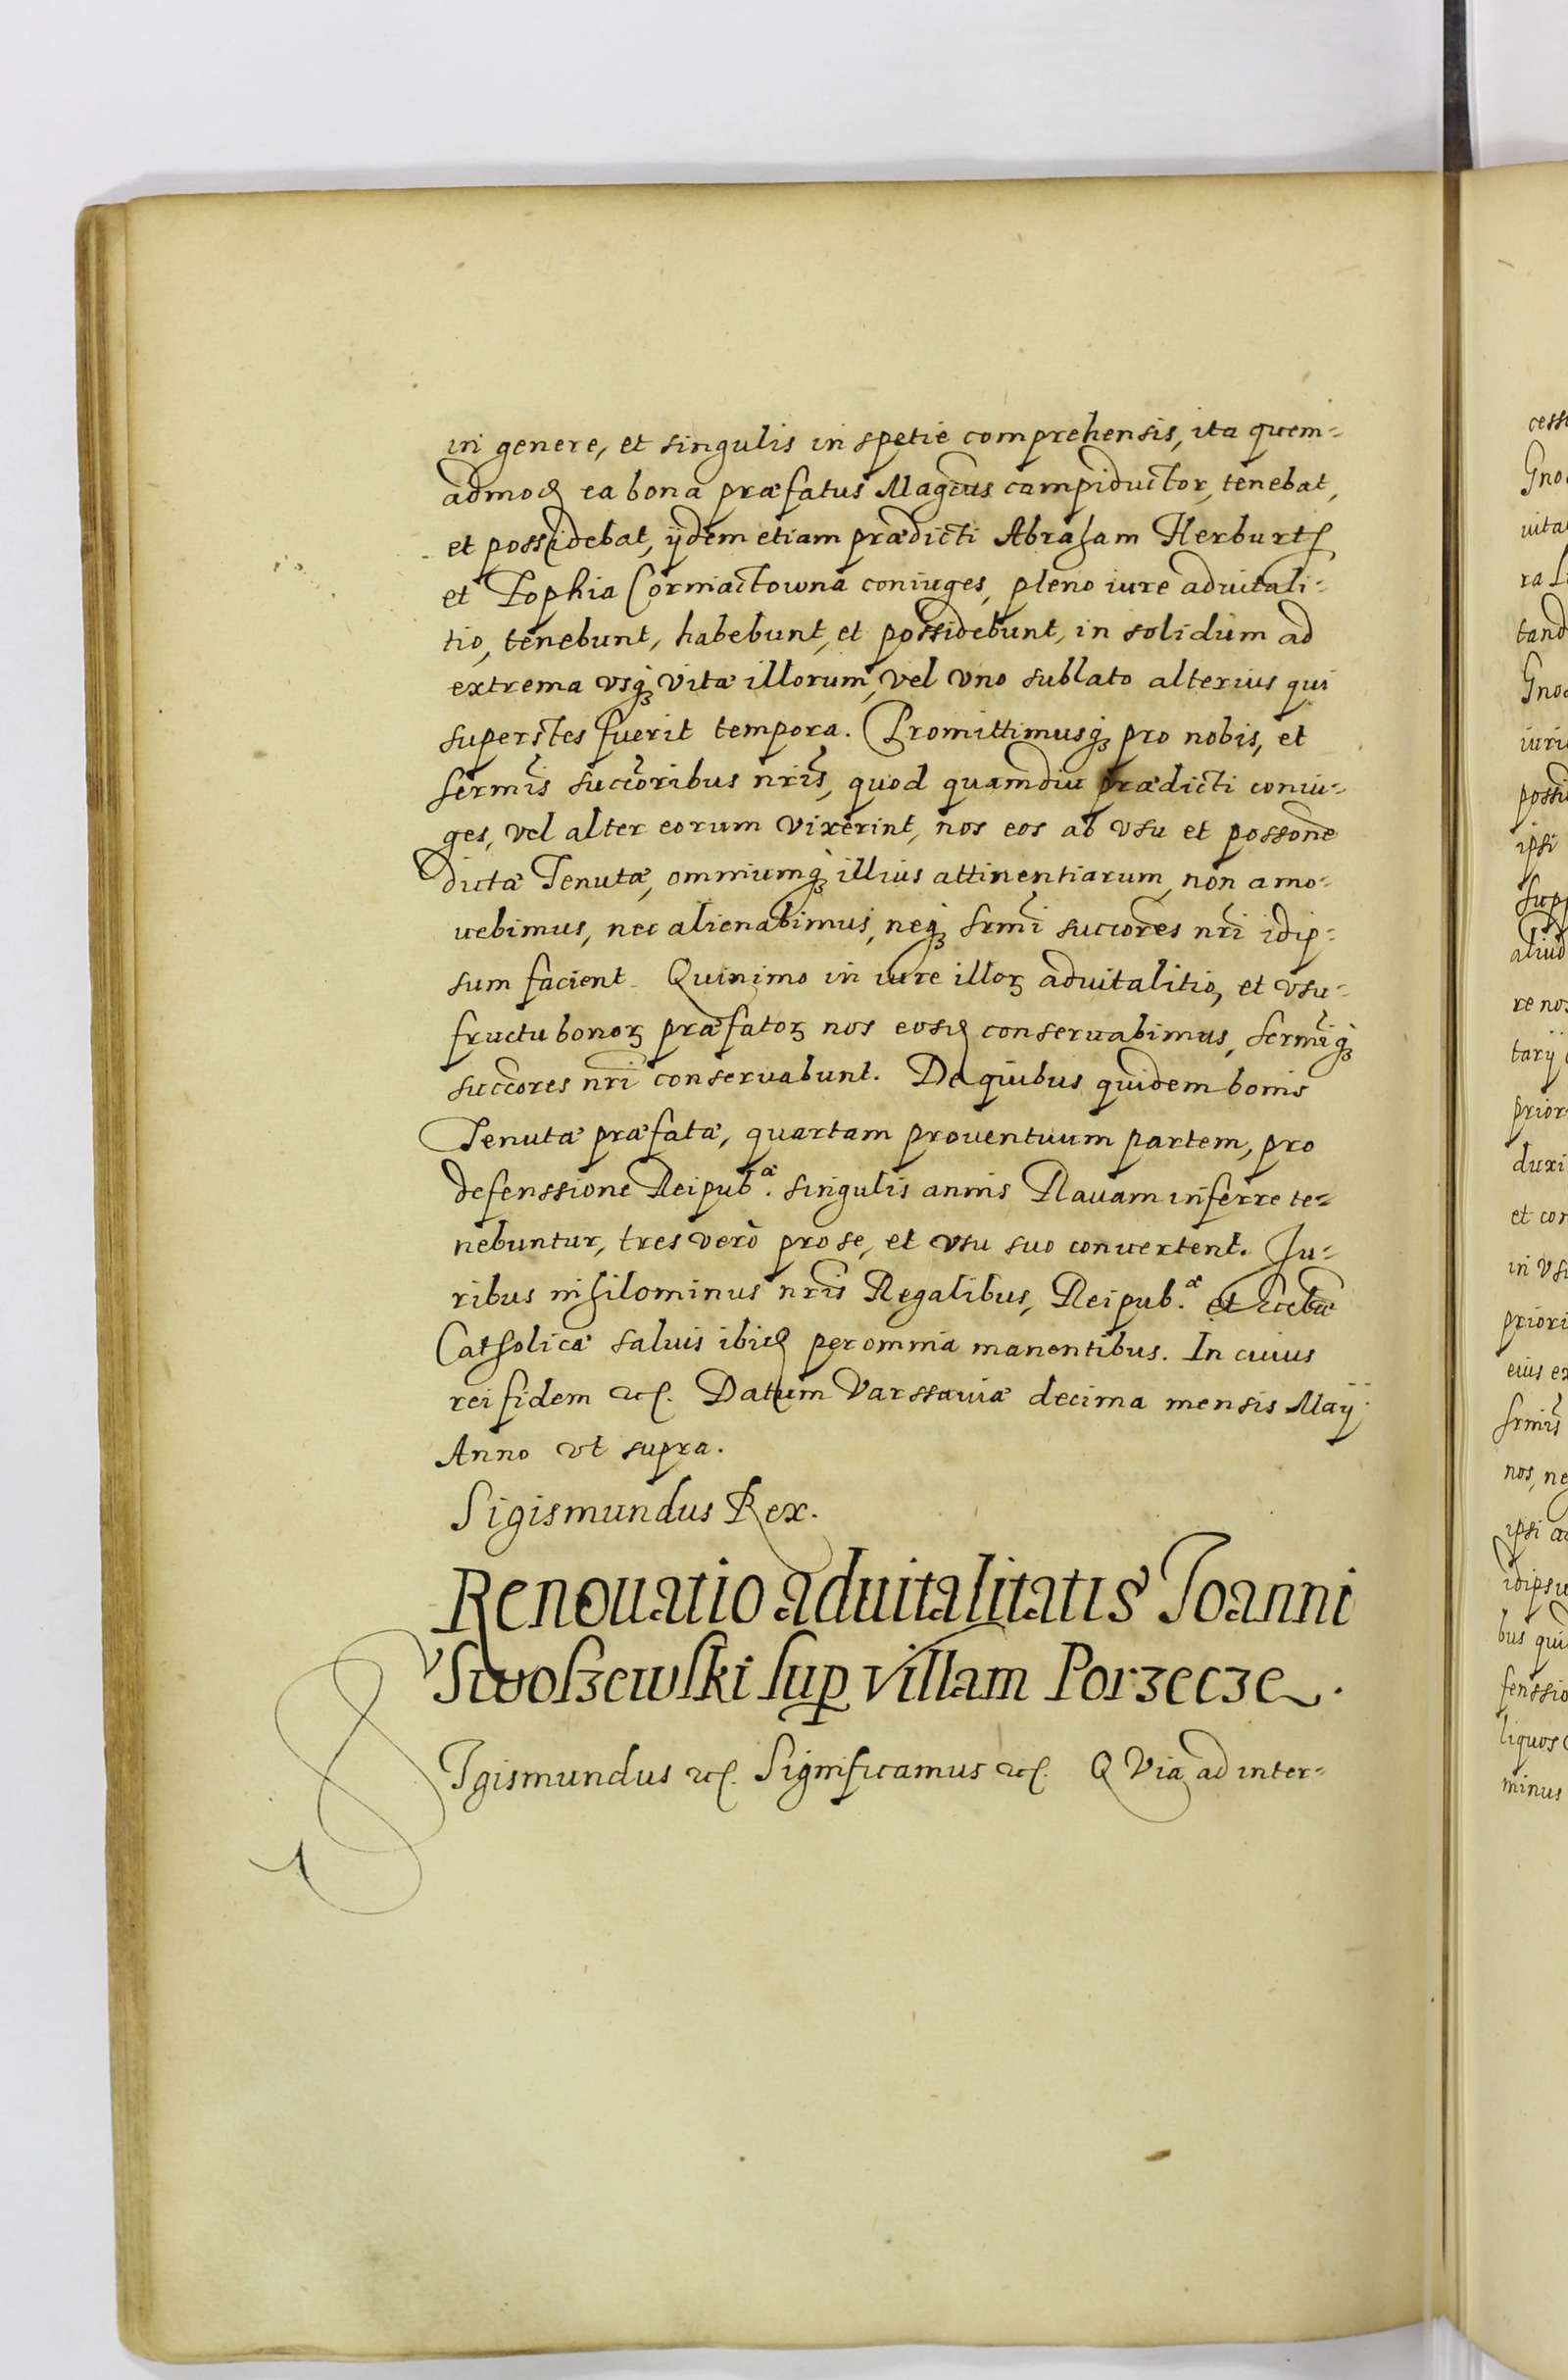 in genere, et singulis in spetie comprehensis, ita quem-
admod ea bona præfatus Magcus campiductor, tenebat,
et possidebat, ijdem etiam prædicti Abraham Herburt
et Zophia Cormactowna coniuges, pleno iure aduitali-
tio, tenebunt, habebunt, et possidebunt, in solidum ad
extrema vsq vitæ illorum, vel vno sublato alterius qui
superstes fuerit tempora. Promittimusq pro nobis, et
sermis succoribus nris, quod quamdiu prædicti coniu-
ges, vel alter eorum vixerint, nos eos ab vsu et possone
dictæ Tenutæ, omniumq illius attinentiarum, non amo-
uebimus, nec alienabimus, neq srmi succores nri idip-
sum facient. Quinimo in iure illoꝝ aduitalitio, et vsu-
fructu bonoꝝ præfatoꝝ nos eosd conseruabimus, sermiq
succores nri conseruabunt. De quibus quidem bonis
Tenutæ præfatæ, quartam prouentuum partem, pro
defenssione Reipub.æ singulis annis Rauam inferre te-
nebuntur, tres verò pro se, et vsu suo conuertent. Ju-
ribus nihilominus nris Regalibus, Reipub.æ et Eccliæ
Catholicæ saluis ibid per omnia manentibus. In cuius
rei fidem etc. Datum Varssauiæ decima mensis Maij
Anno vt supra.
Sigismundus Rex.
Renouatio aduitalitatis Joanni
Swoszewski sup villam Porzecze.
SIgismundus etc. Significamus etc. QVia ad inter-
cess
Gno
uita
ra
tand
Gno
iuri
possi
ipsi
supp
aliud
re nos
tarij
prior
duxi
et con
in vs
priori
eius ex
srmis
nos, ne
ipsi a
idipsu
bus qui
fenssio
liquos
minus